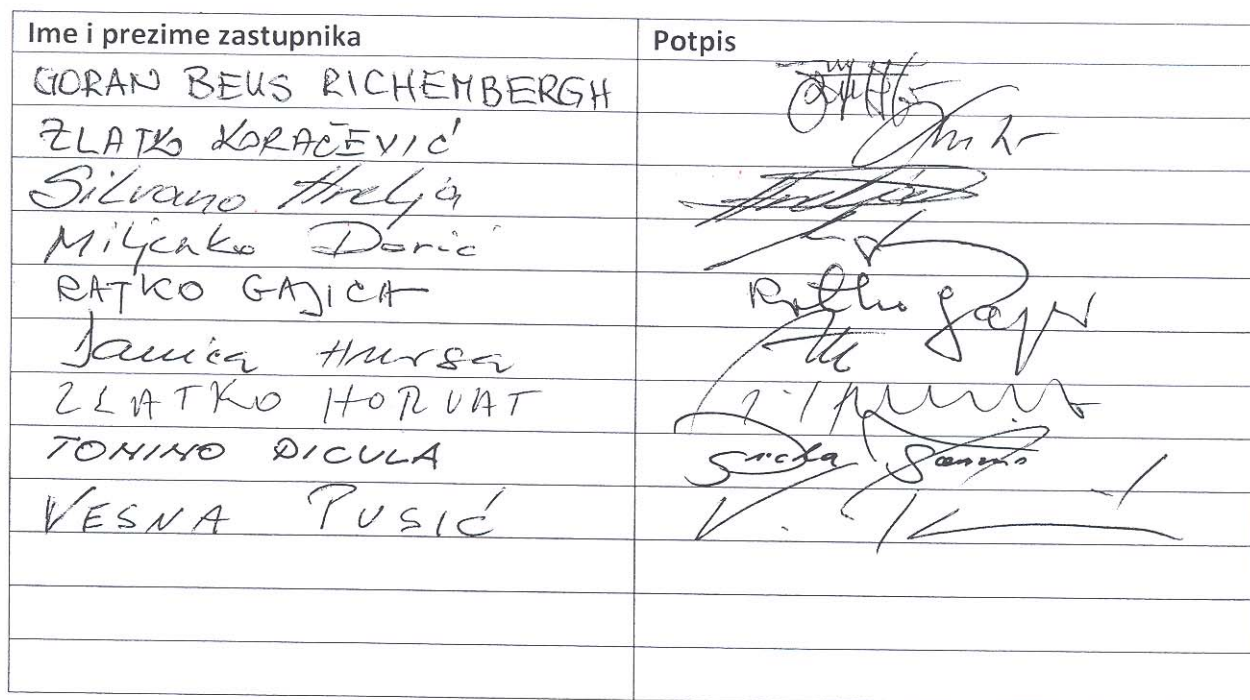 Ime i prezime zastupnika Potpis
GORAN BEUS RICHEMBERGH
ZLATKO KORAČEVIĆ
Silvano Hrelja
Miljenko Dorić
RATKO GAJICA Ratko Gajica
Janica Hursa
ZLATKO HORVAT
TONINO PICULA
VESNA PUSIĆ